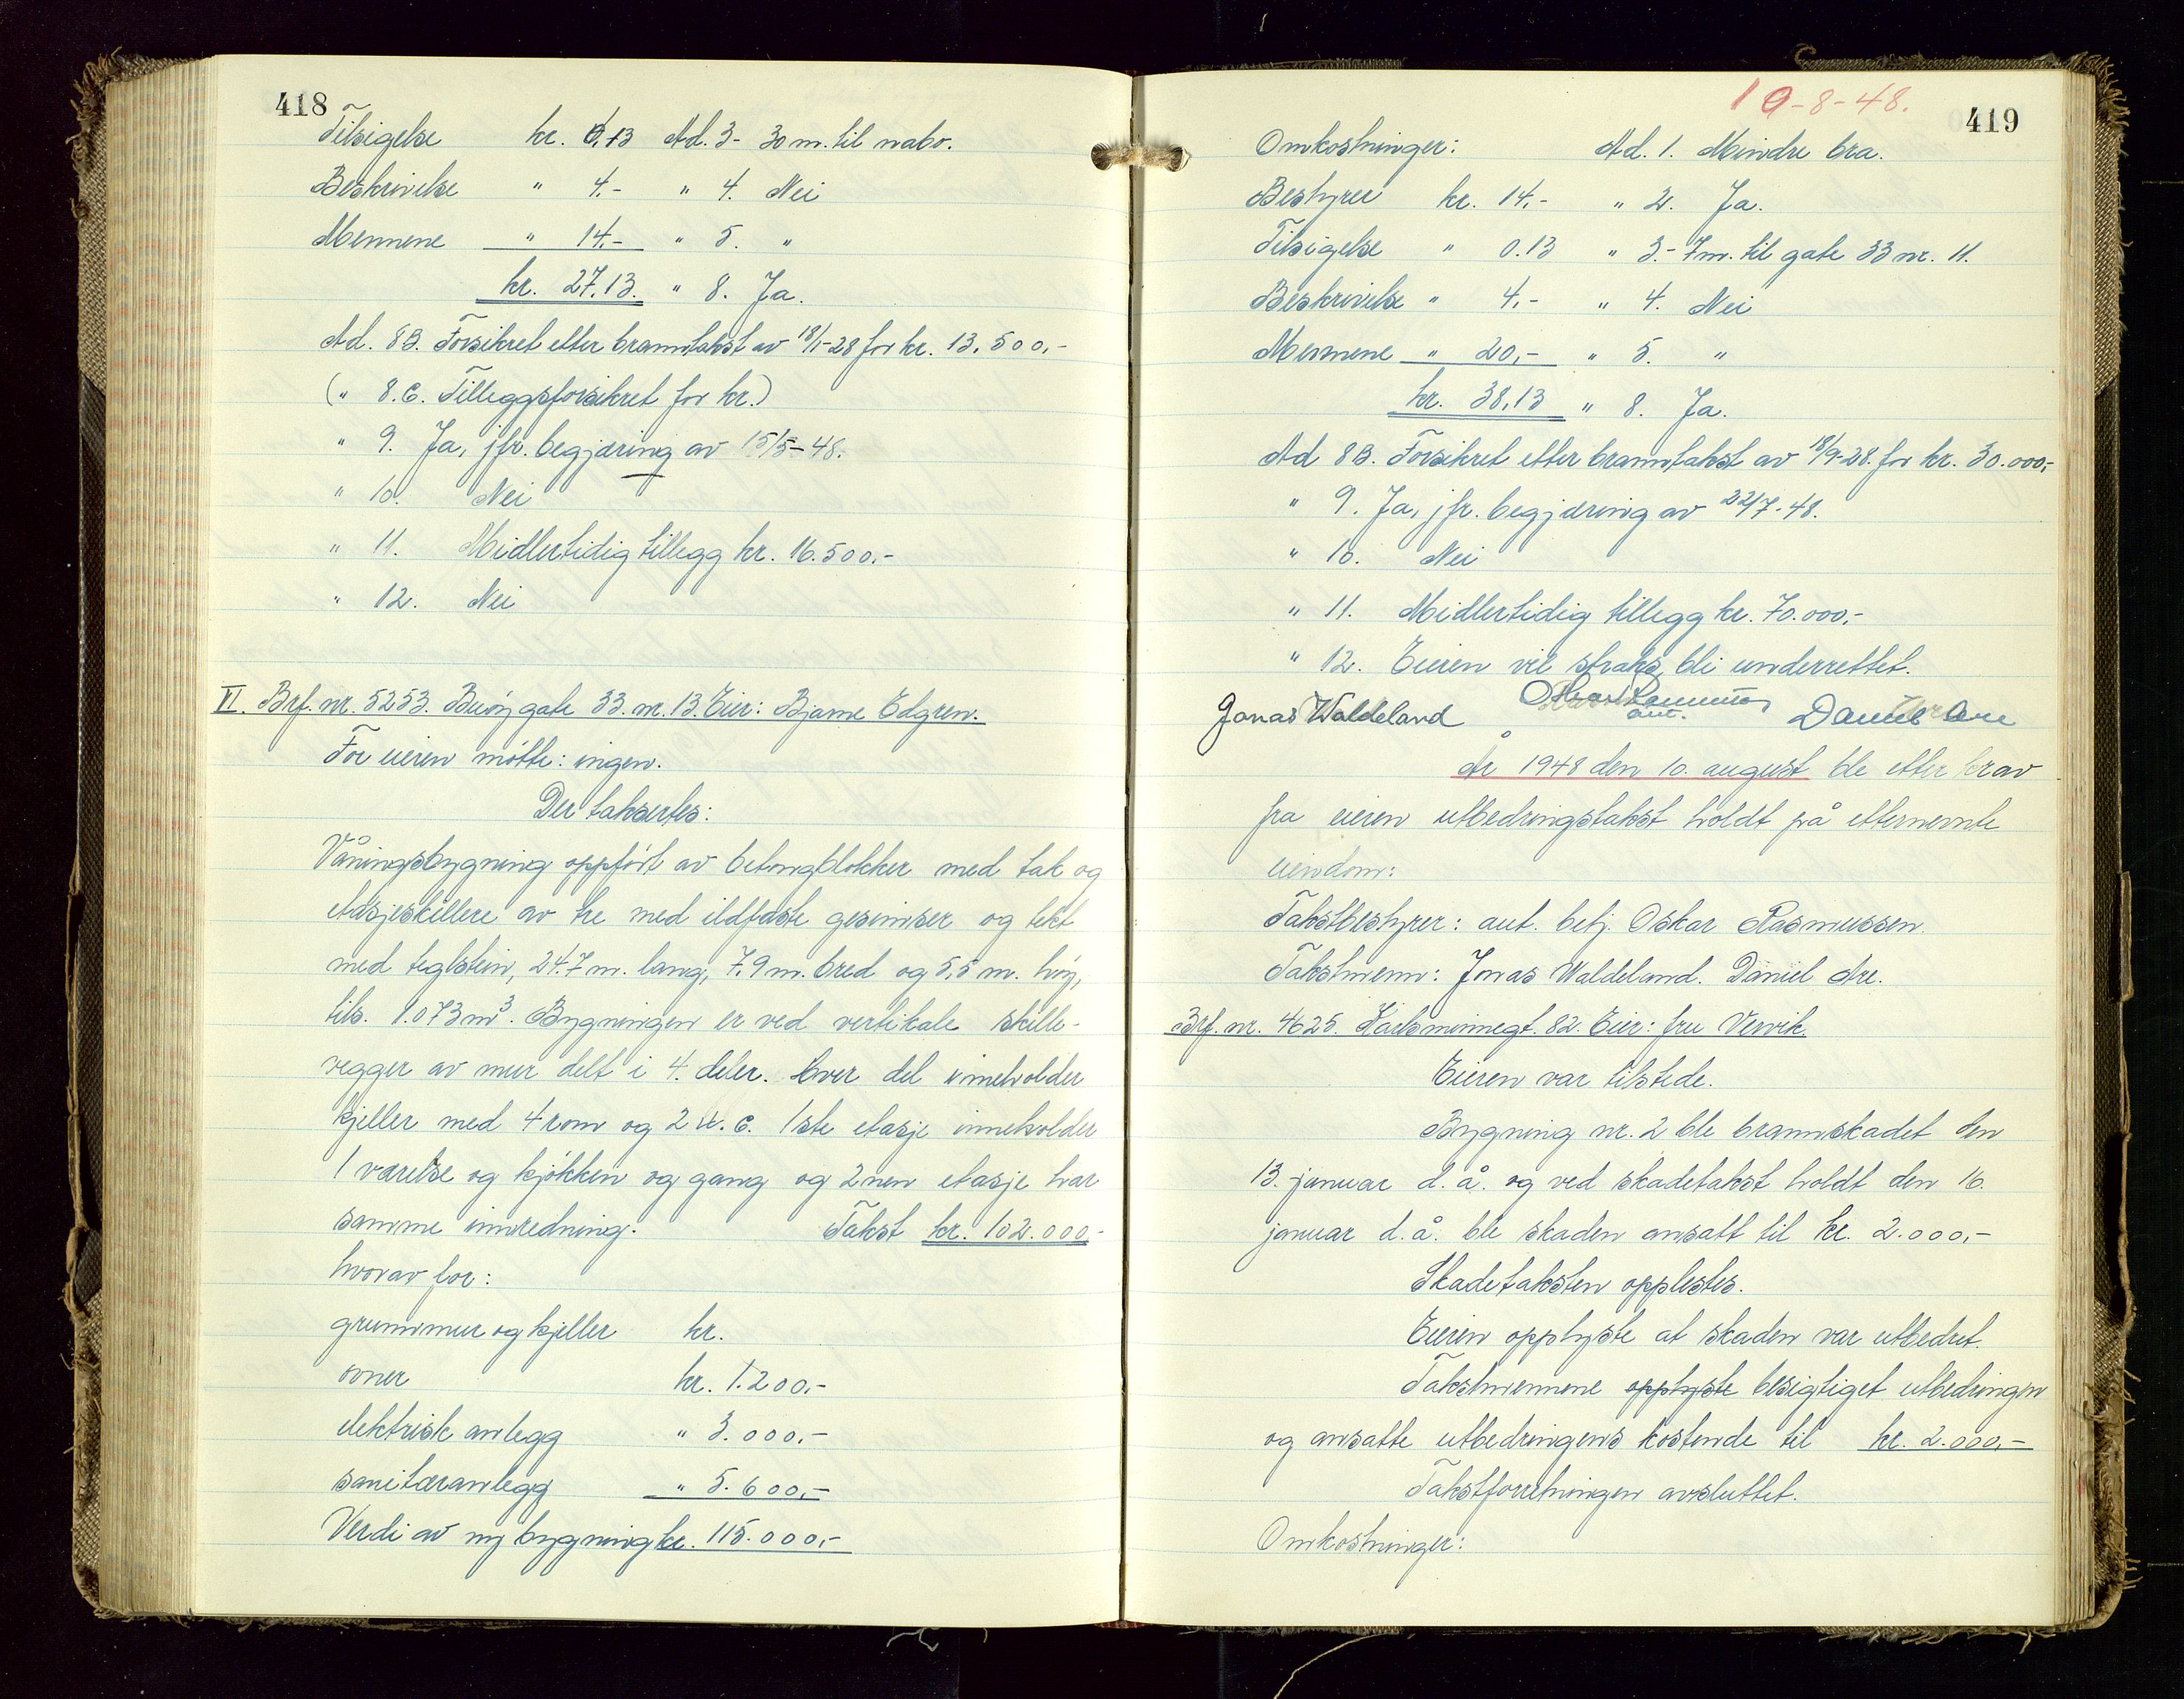 418
Tilsigelse kr. 0,13 Ad. 3- 30 m. til nabo.
Beskrivelse " 4.- " 4. Nei
Mennene " 14.- " 5. "
kr. 27.13. " 8. Ja.
Ad. 8B. Forsikret etter branntakst av 18/1-28 for kr. 13.500,-
(" 8.C. Tilleggsforsikret for kr.)
" 9. Ja, jfr. begjæring av 15/5-48.
" 10. Nei
" 11. Midlertidig tillegg kr. 16.500.-
" 12. Nei
VI. Brf. nr. 5253. Buøy gate 33. nr. 13. Eier: Bjarne Edgren.
For eieren møtte: ingen.
Der taksertes:
Våningsbygning oppført av betongblokker med tak og
etasjeskillere av tre med ildfaste gesimser og tekt
med teglstein, 24.7 m. lang, 7,9 m. bred og 5,5 m. høy,
tils. 1.073 m³. Bygningen er ved vertikale skille-
vegger av mur delt i 4. deler. hver del inneholder
kjeller med 4 rom og 2 w.c. 1ste etasje inneholder
1 værelse og kjøkken og gang og 2nen etasje har
samme innredning. Takst kr. 102.000,-
hvorav for:
grunnmur og kjeller kr.
ovner kr. 1.200,-
elektrisk anlegg " 3.000.-
sanitæranlegg " 5.600,-
Verdi av ny bygning kr. 115.000,-
10-8-48.
419
Omkostninger: Ad. 1. Mindre bra.
Bestyrer kr. 14,- " 2. Ja.
Tilsigelse " 0.13 " 3.- 7 m. til gate 33 nr. 11.
Beskrivelse " 4,- " 4. Nei
Mennene " 20,- " 5. "
kr. 38,13 " 8. Ja.
Ad 8B. Forsikret etter branntakst av 18/9-28. for kr. 30.000,-
" 9. Ja, jfr. begjæring av 22/7-48.
" 10. Nei
" 11. Midlertidig tillegg kr. 70.000,-
" 12. Eieren vil straks bli underrettet.
Jonas Waldeland Oskar Rasmussen Daniel Are
aut.
År 1948 den 10. august ble etter krav
fra eieren utbedringstakst holdt på etternevnte
eiendom:
Takstbestyrer: aut. betj. Oskar Rasmussen.
Takstmenn: Jonas Waldeland. Daniel Are.
Brf. nr. 4625. Karlsminnegt. 82. Eier: fru Vervik.
Eieren var tilstede.
Bygning nr. 2 ble brannskadet den
13. januar d.å. og ved skadetakst holdt den 16.
januar d.å. ble skaden ansatt til kr. 2.000,-
Skadetaksten opplestes.
Eieren opplyste at skaden var utbedret.
Takstmennene opplyste besigtiget utbedringen
og ansatte utbedringens kostende til kr. 2.000,-
Takstforretningen avsluttet.
Omkostninger: